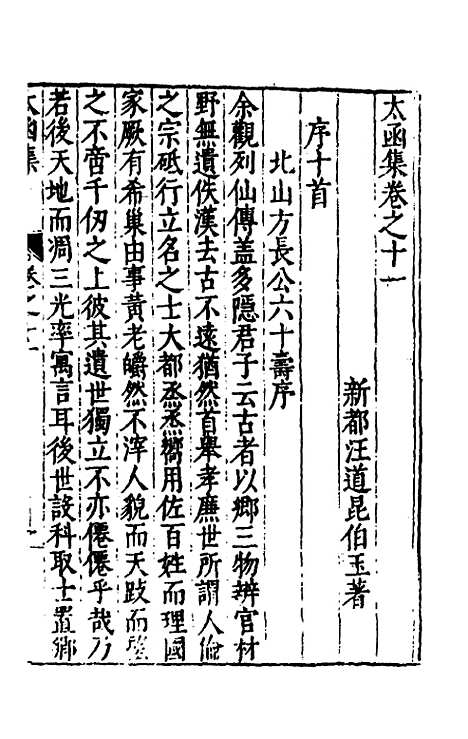 太函集卷之十一
新都汪道昆伯玉著
序十首
北山方長公六十壽序
余觀列仙傳盖多隱君子云古者以鄉三物辨官材
野無遺佚漢去古不遠猶然首舉孝廉世所謂人倫
之宗砥行立名之士大都烝烝嚮用佐百姓而理國
家厥有希巢由事黄老皭然不滓人貌而天跂而望
之不啻千仞之上彼其遺世獨立不亦僊僊乎哉乃
若後天地而凋三光率寓言耳後世設科取士置鄉
太函集
卷之十一